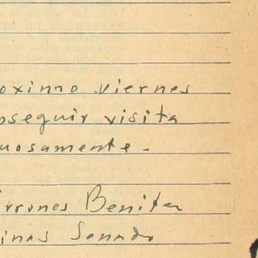 oximo viernes
nseguir visita
uosamente.
Benitez
inas Senado